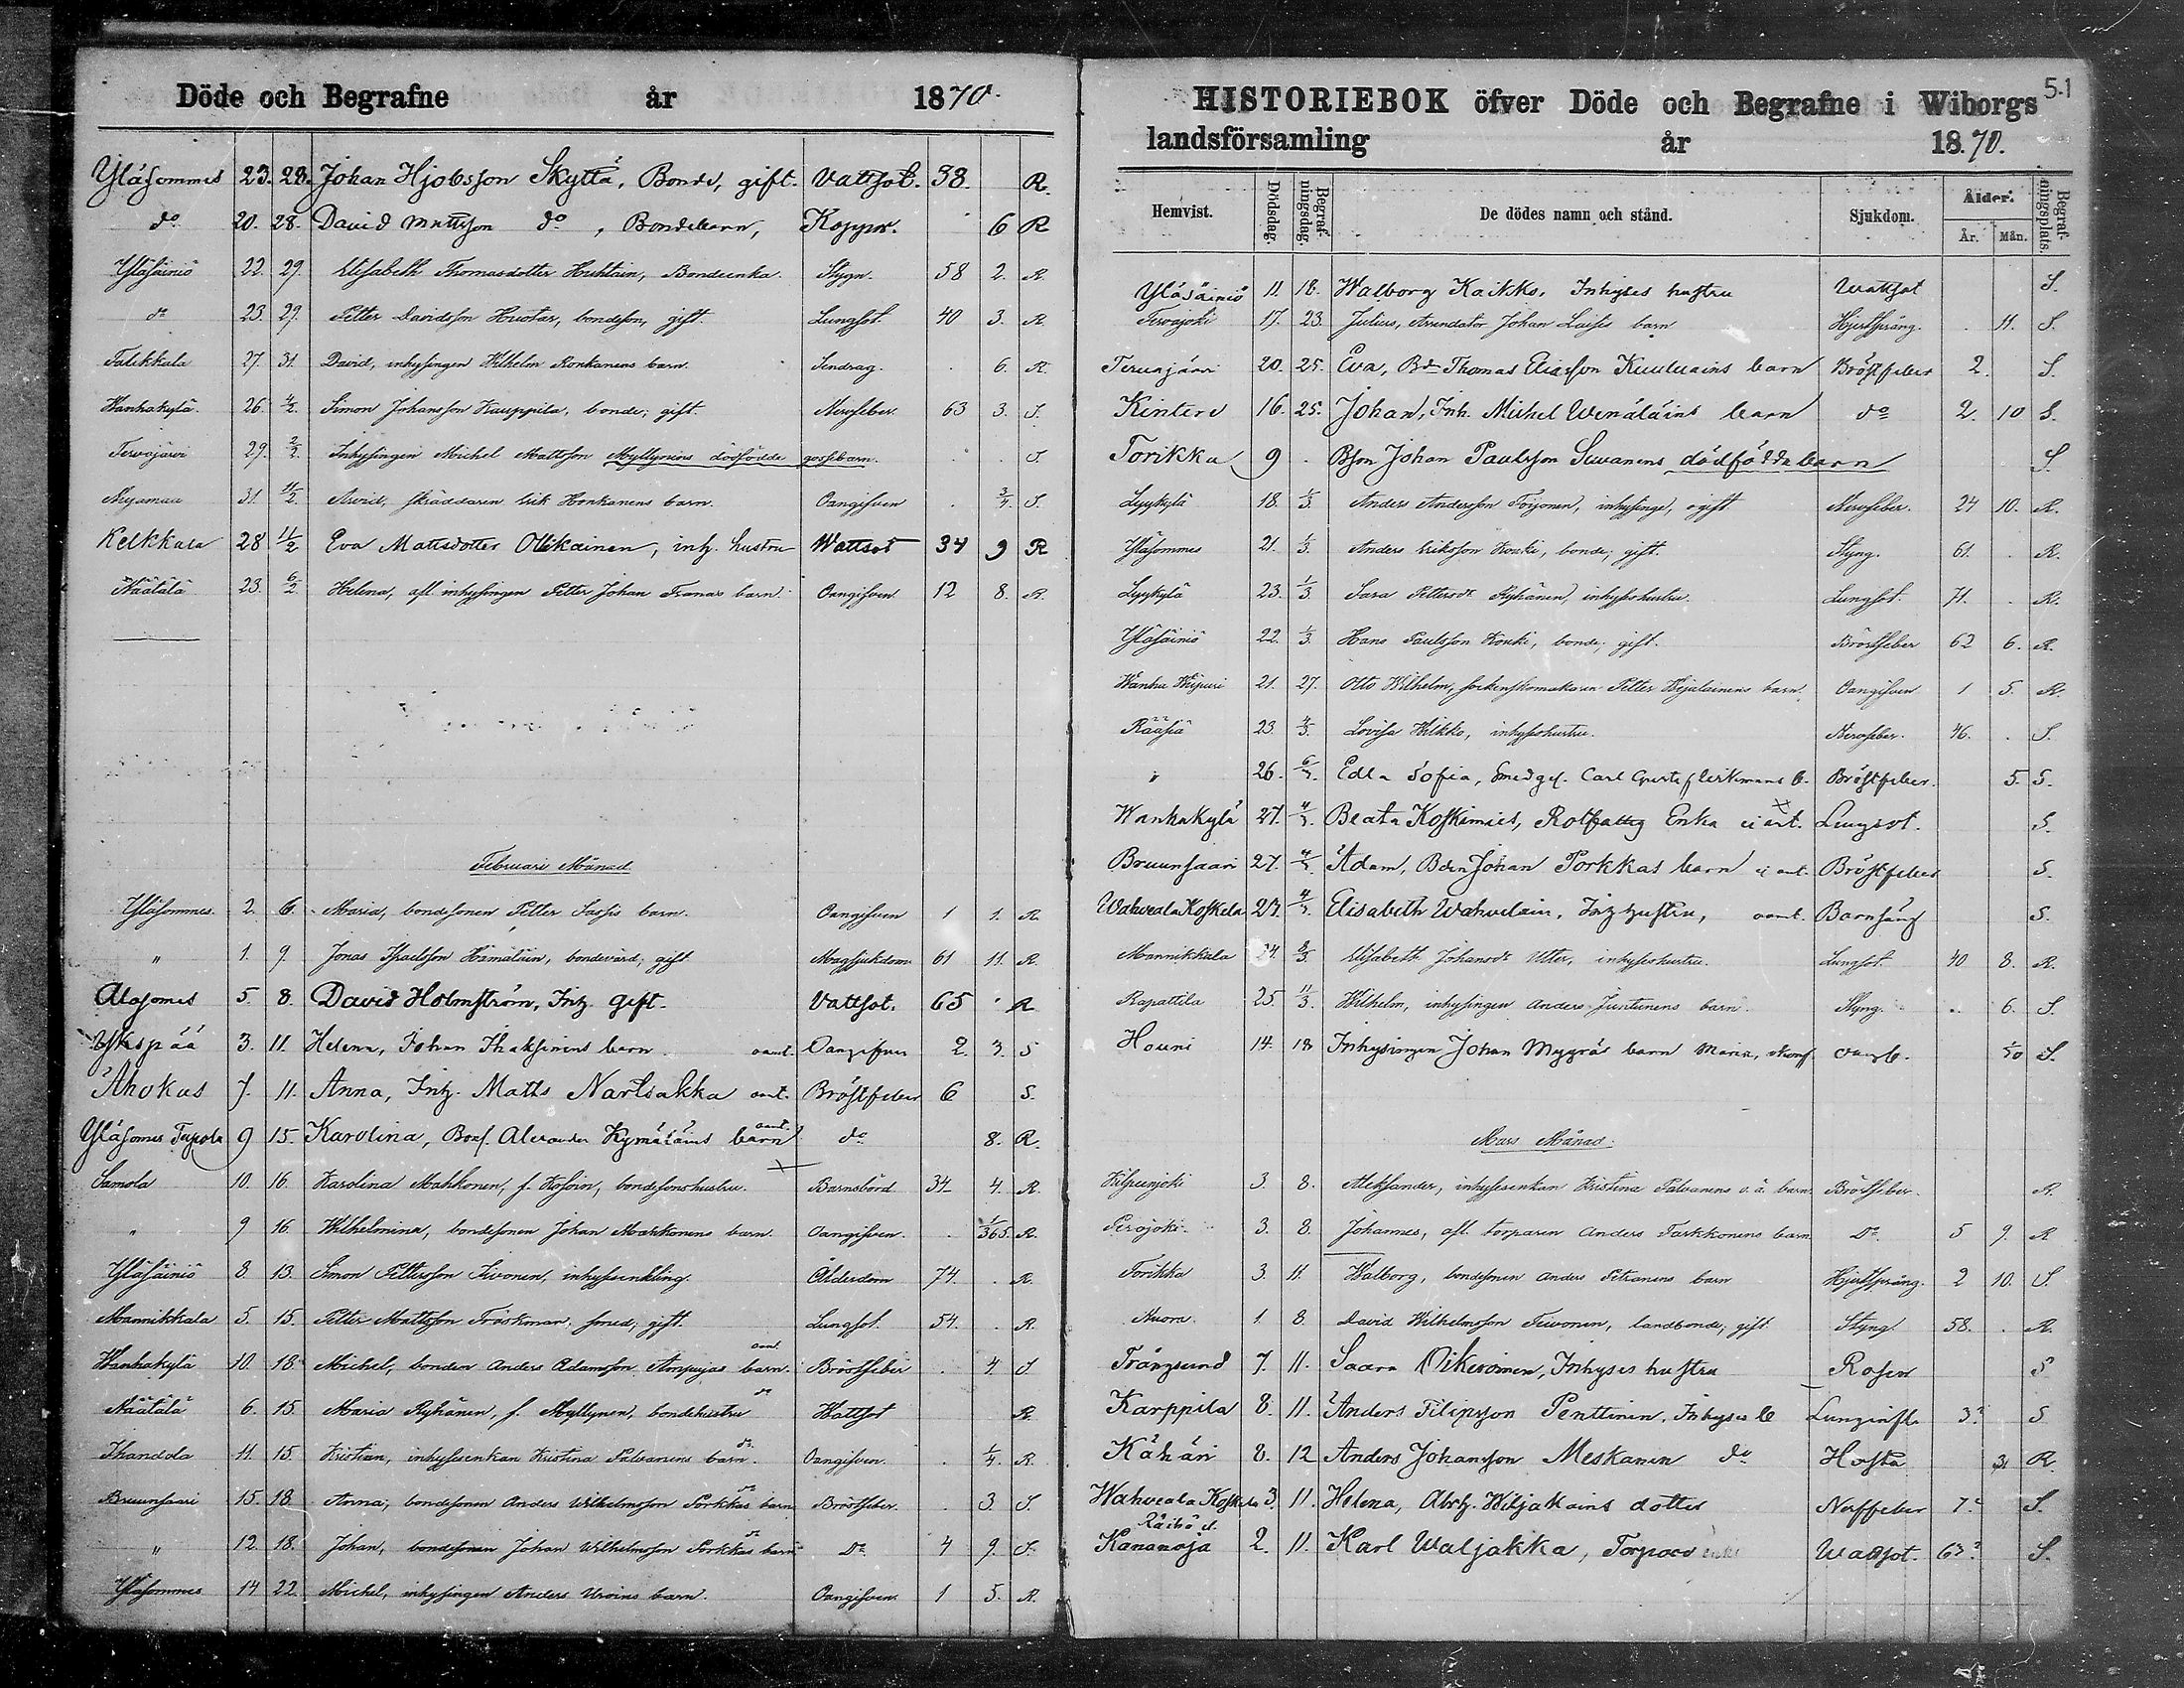 Döde och Begrafne år 1870.
Yläsommes 23. 28. Johan Hjobsson Skyttä, Bonde, gift. Vattsot. 38. R.
do 20. 28. David Mattsson do, Bondebarn, Koppor. 6 R
Yläsäiniö 22. 29. Elisabeth Thomasdotter Huhtain, Bondeenka. Stygn. 58 2. R.
do 23. 29. Petter Davidsson Huotar, bondeson, gift. Lungsot. 40 3. R.
Talikkala 27. 31. David, inhysingen Wilhelm Ronkanens barn. Sendrag. 6. R.
Wanhakylä. 26. 4/2. Simon Johansson Kauppila, bonde; gift. Nervfeber. 63 3. S.
Tervajärvi 29. 2/2. Inhysingen Michel Mattsson Myllynens dödfödde gossebarn. S.
31. 11/2. Arvid, skräddaren Erik Honkanens barn. Oangifven 3/4. S.
Kelkkala 28 11/2 Eva Mattsdotter Ollikainen, inh. hustru Wattsot 34 9 R
Näätälä 23. 6/2. Helena, afl. inhysingen Petter Johan Tranas barn. Oangifven 12 8. R.
Februari Månad
Yläsommes. 2. 6. Maria, bondesonen Petter Sassis barn. Oangifven 1 1. R
" 1. 9. Jonas Hämäläin, bondevärd; gift Magsjukdom 61 11. R.
Alasomes 5. 8. David Holmström, Inh. gift. Vattsot. 65 R
Ykspää 3. 11. Helena, Johan barn oant. Oangifven 2. 3. S
Ahokas 7. 11. Anna, Inh. Matts Nartsakka oant. Bröstfeber 6 S.
Yläsomes Tapola 9 15. Karolina, Bons. Alexander Kymäläins barn oant. do 8. R.
Samola 10. 16. Karolina Mahkonen, f. Kosoin, bondesonshustru. Barnsbörd 34 4. R.
" 9 16. Wilhelmina, bondesonen Johan Mahkonens barn. Oangifven. 1/365. R.
Yläsäiniö 8. 13. Simon Pettersson Sivonen, inhysenkling. Ålderdom 74. R.
Mannikkala 5. 15. Petter Mattsson Träskman, smed; gift. Lungsot. 54. R.
Wanhakylä 10. 18. Michel, bonden Anders Adamsson Ampujas barn. oant. Bröstfeber 4 S
Näätälä 6. 15. Maria Ryhänen, f. Myllynen, bondehustru do Wattsot R.
Ihandola 11. 15. Kristian, inhysesenkan Kristina Pälvanens barn. do Oangifven. 1/4. R.
Bruunsaari 15. 18. Anna, bondesonen Anders Wilhelmsson Porkkas barn do Bröstfeber. 3. S.
" 12. 18. Johan, bondesonen Johan Wilhelmsson Porkkas barn do Do 4 9. S.
Yläsommes 14 22. Michel, inhysingen Anders Uroins barn. Oangifven. 1 5. R.
51
HISTORIEBOK öfver Döde och Begrafne i Wiborgs
landsförsamling år 1870.
Hemvist. Dödsdag. Begrafningsdag. De dödes namn och stånd. Sjukdom. Ålder. År. Mån. Begrafningsplats.
Yläsäiniö 11. 18. Walborg Kaikko, Inhyses hustru Wattsot S.
Tervajoki 17. 23. Julius, Arrendator Johan Laisis barn Hjertspräng. 11. S.
Tervajärvi 20. 25. Eva, Bd Thomas Eliasson Kuuluains barn Bröstfeber 2. S.
Kintere 16. 25. Johan, Inh. Michel Wenäläins barn do 2. 10 S.
Torikka 9. Bson Johan Paulsson Suvanens dödfödda barn S.
Lyykylä 18. 1/3. Anders Andersson Toijonen, inhysinge, ogift Nervfeber. 24 10. R.
Yläsommes 21. 1/3. Anders Eriksson Kouki, bonde; gift. Styng. 61. R.
Lyykylä 23. 1/3. Sara Pettersdr Ryhänen, inhyseshustru. Lungsot. 71. R.
Yläsäiniö 22. 1/3. Hans Paulsson Kouki, bonde; gift. Bröstfeber 62 6. R.
Wanha Wiipuri 21. 27. Otto Wilhelm, sockenskomakaren Petter barn. Oangifven 1 5. R.
Rääsiä 23. 4/3. Lovisa Wilkko, inhyseshustru. Nervfeber. 46. S.
" 26. 6/3. Edla Sofia, Smedges. Carl b. Bröstfeber. 5. S.
Wanhakylä 27. 4/3. Beata Koskimies, Rotfattig Enka ej ant. Lungsot. S.
Bruunsaari 27. 4/3. Adam, Bden Johan Porkkas barn ej ant. Bröstfeber S.
Wahveala Koskela 27. 4/3. Elisabeth Wahvelain, Inh hustru, oant. Barnsäng S.
Mannikkala 24. 8/3. Elisabeth Johansdr Utter, inhyseshustru. Lungsot. 40 8. R.
Rapattila 25. 11/3. Wilhelm, inhysingen Anders Juntunens barn. Styng. 6. S.
Houni 14. 18 Inhysingen Johan Myyräs barn Maria, 1/20 S.
Mars Månad.
Kilpeenjoki 3. 8. Aleksander, inhysesenkan Kristina Pälvanens o.ä. barn. Bröstfeber. R.
Perojoki 3. 8. Johannes, afl. torparen Anders Tarkkonens barn Do 5 9. R.
Torikka 3. 11. Walborg, bondesonen Anders Pitranens barn Hjertspräng. 2 10. S.
Nuora. 1. 8 David Wilhelmsson Teivonen, landbonde; gift Styng. 58. R.
Trångsund 7. 11. Saara Oikeroinen, Inhyses hustru Rosen S
Karppila 8. 11. Anders Filipsson Penttinen, Inhyses b Lunginfl. 3? S
Kähäri 8. 12 Anders Johansson Meskanen do Hosta 3 R.
Wahveala Koskela 3. 11. Helena, Abrh. Wiljakains dotter Nerffeber 7? S.
Räihä d.
Kananoja 2. 11. Karl Waljakka, Torpare Wattsot. 63? S.